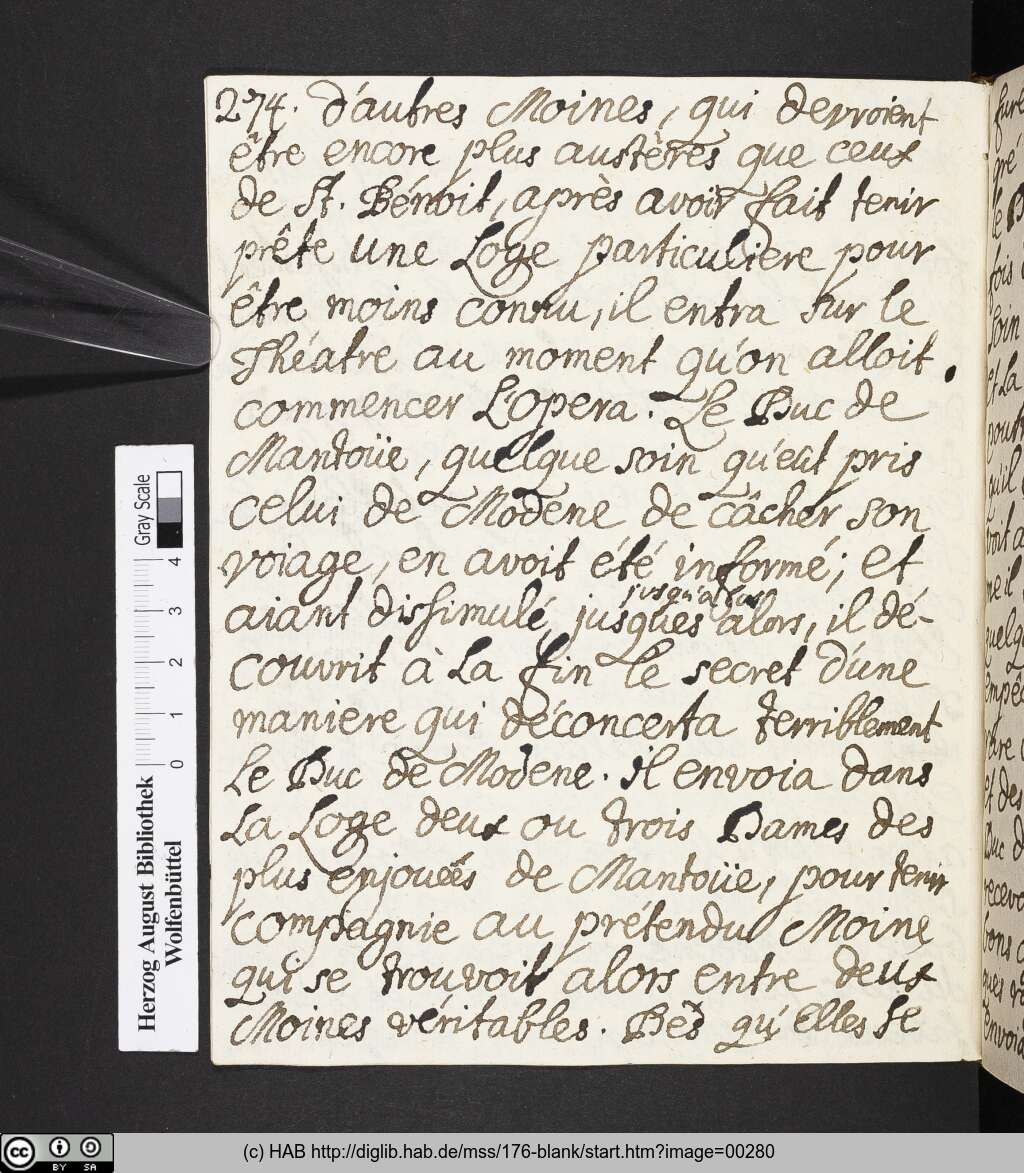 274. d'autres Moines, qui devroient
être encore plus austères que ceux
de St. Bénoit, après avoir fait tenir
prête une Loge particuliere pour
être moins connu, il entra sur le
Théatre au moment qu'on alloit
commencer L'Opera. Le Duc de
Mantoüe, quelque soin qu'eut pris
celui de Modene de câcher son
voiage, en avoit été informé; et
jusqu'alors
aiant dissimulé, jusques alors, il dé-
couvrit à La fin le secret d'une
maniere qui déconcerta terriblement
Le Duc de Modene. il envoia dans
La Loge deux ou trois Dames des
plus enjouées de Mantoüe, pour tenir
compagnie au prétendu Moine
qui se trouvoit alors entre deux
Moines véritables. Dès qu'Elles se
Herzog August Bibliothek
Wolfenbüttel
0 1 2 3 4 Gray Scale
CC BY SA
(c) HAB http://diglib.hab.de/mss/176-blank/start.htm?image=00280